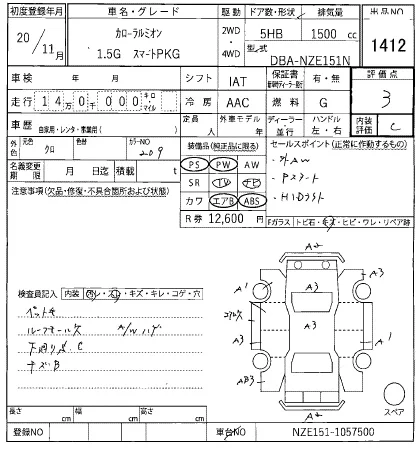 初度登録年月 車名・グレード 駆動 ドア数・形状 排気量 出品NO
20/11月 カローラルミオン 2WD・4WD 5HB 1500cc 1412
1.5G スマートPKG 型式 DBA-NZE151N
車検 年 月 シフト IAT 保証書 有・無 評価点
走行 14万0000 キロ マイル 冷房 AAC 燃料 G 3
車歴 自家用・レンタ・ 定員 人 外車モデル 年 ディーラー 並行 ハンドル 左・右 内装評価 C
色 元色 クロ 色替 カラーNO 209
装備品(純正品に限る) セールスポイント(正常に作動するもの)
名義変更期限 月 日迄 積載 t
PS PW AW ・外AW
SR TV ナビ ・Pスタート
カワ エアB ABS ・HIDライト
注意事項(欠品・修復・不具合箇所および状態)
R券 12,600円
Fガラス トビ石・キズ・ヒビ・ワレ・リペア跡
A2
A3
A3
A1
A1
A3
A3
AB3
A3
A2
検査員記入 内装 ヨゴレ・スレ・キズ・キレ・コゲ・穴
ペット毛
ルーフモール欠 A/Wハゲ
下廻り C
キズB
スペア
長さ cm 幅 cm 高さ cm
登録NO 車台NO NZE151-1057500